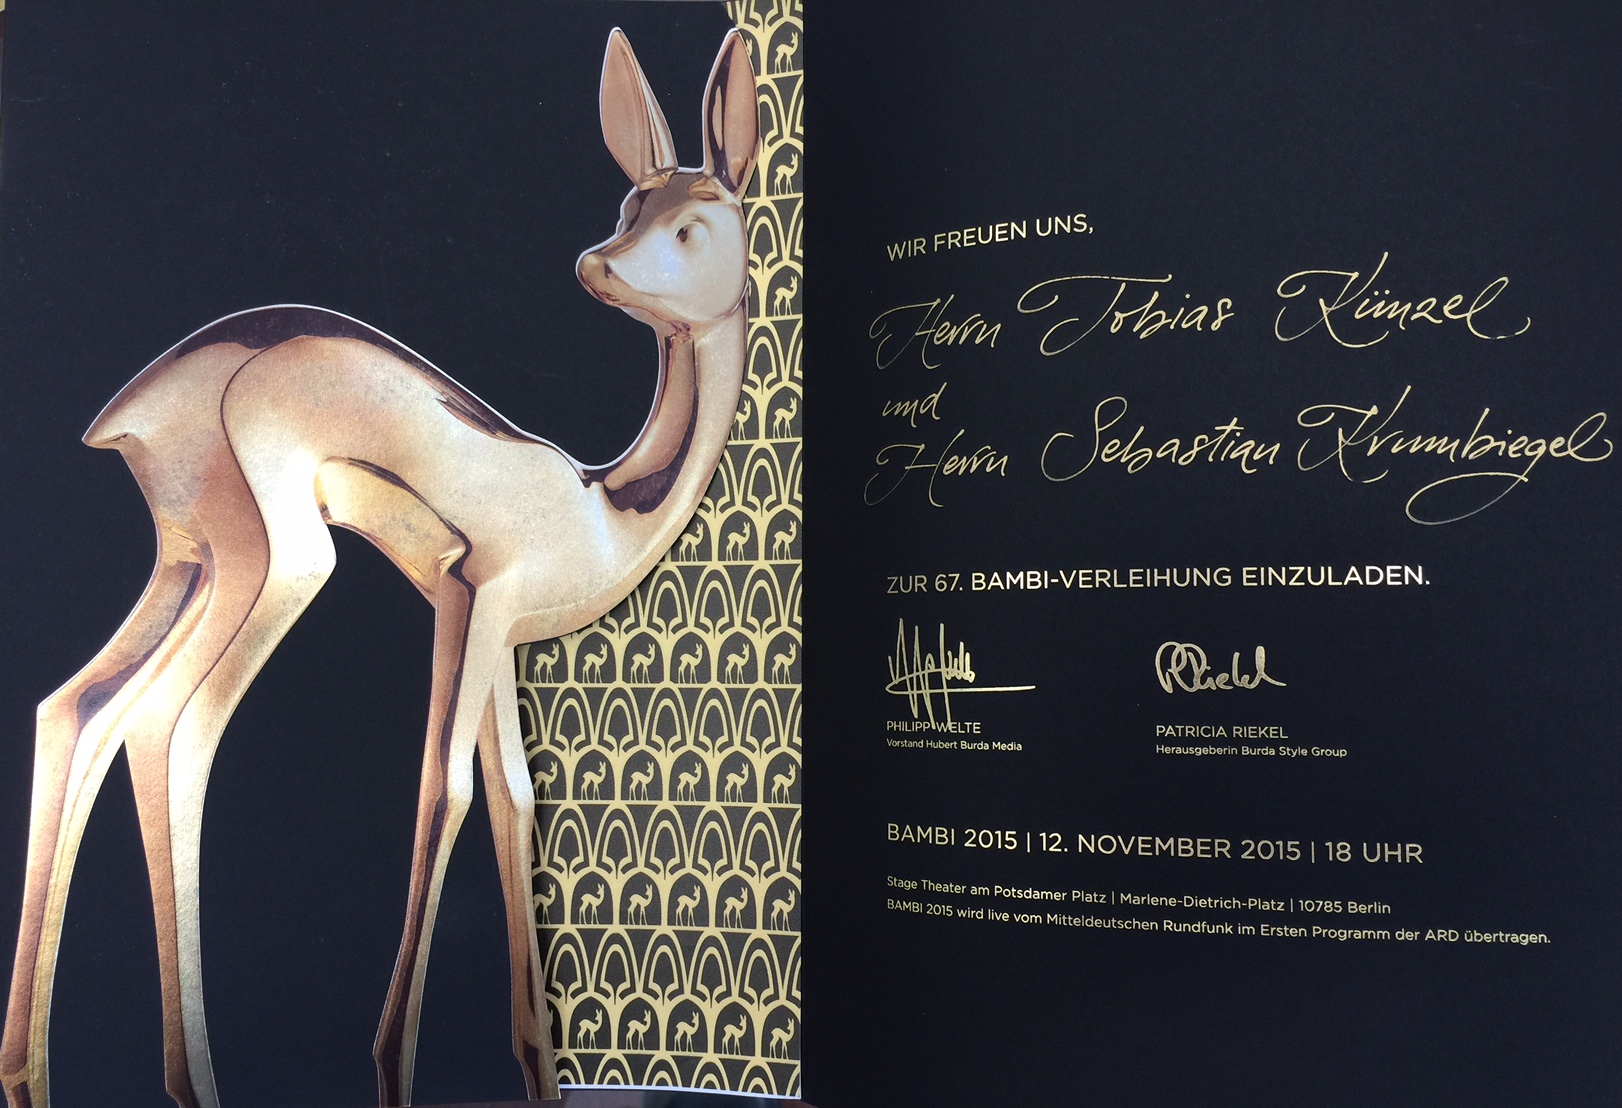 WIR FREUEN UNS,
Herrn Tobias Künzel
und
Herrn Sebastian Krumbiegel
ZUR 67. BAMBI-VERLEIHUNG EINZULADEN.
PHILIPP WELTE
Vorstand Hubert Burda Media
PRiekel
PATRICIA RIEKEL
Herausgeberin Burda Style Group
BAMBI 2015 | 12. NOVEMBER 2015 | 18 UHR
Stage Theater am Potsdamer Platz | Marlene-Dietrich-Platz | 10785 Berlin
BAMBI 2015 wird live vom Mitteldeutschen Rundfunk im Ersten Programm der ARD übertragen.